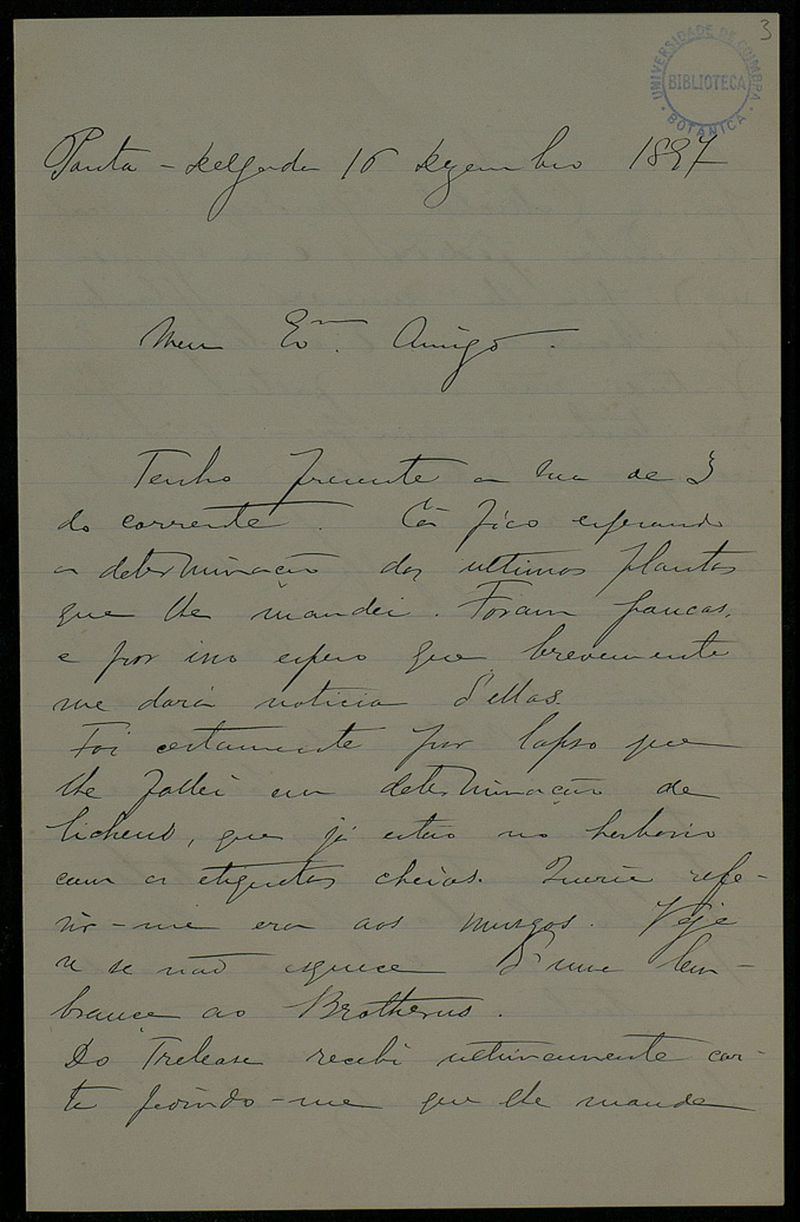 3
UNIVERSIDADE DE COIMBRA
BIBLIOTECA
BOTANICA
Ponta-Delgada 16 Dezembro 1897
Meu Exmo. Amigo.
Tenho presente a sua de 3
do corrente. Cá fico esperando
a determinação das ultimas plantas
que lhe mandei. Foram poucas,
e por isso espero que brevemente
me dará noticia d'ellas.
Foi certamente por lapso que
lhe fallei em determinação de
lichens, que já estão no herbario
com as etiquetas cheias. Queria refe-
rir-me era aos musgos. Veja
se se não esquece d'uma lem-
brança ao Brotherus.
Do Trelease recebi ultimamente car-
ta pedindo-me que lhe mande